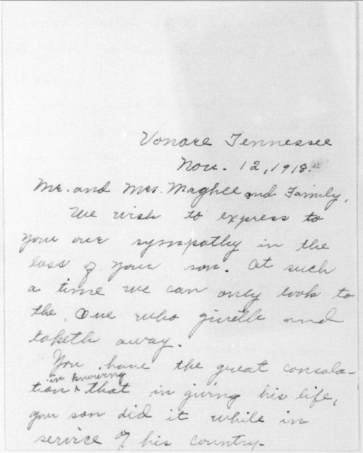 Vonore Tennessee
Nov. 12, 1918.
Mr. and Mrs. Maghee and Family,
We wish to express to
you our sympathy in the
loss of your son. At such
a time we can only look to
the One who giveth and
taketh away.
You have the great consola-
tion in knowing that in giving his life,
your son did it while in
service of his country.